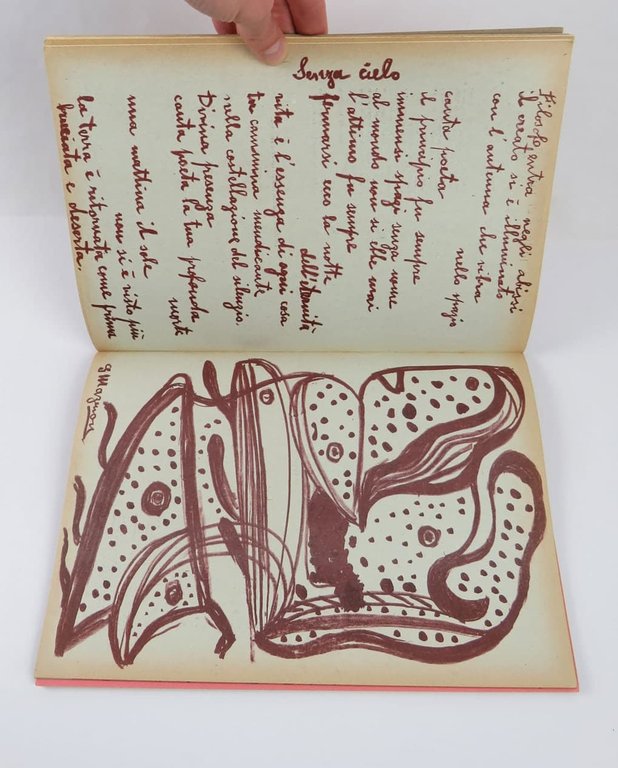 Senza cielo
entra negli abissi
il creato si è illuminato
con l'autunno che vibra
nello spazio
canta poeta
il principio fu sempre
immensi spazi senza nome
al mondo non si mai
l'attimo fu sempre
fermarsi ecco la notte
dell'eternità
vita è l'essenza di ogni cosa
tu cammina mendicante
nella costellazione del
Divina presenza
canta poeta la tua profonda
morte
una mattina il sole
non si è visto più
la terra è ritornata come prima
bruciata e deserta.